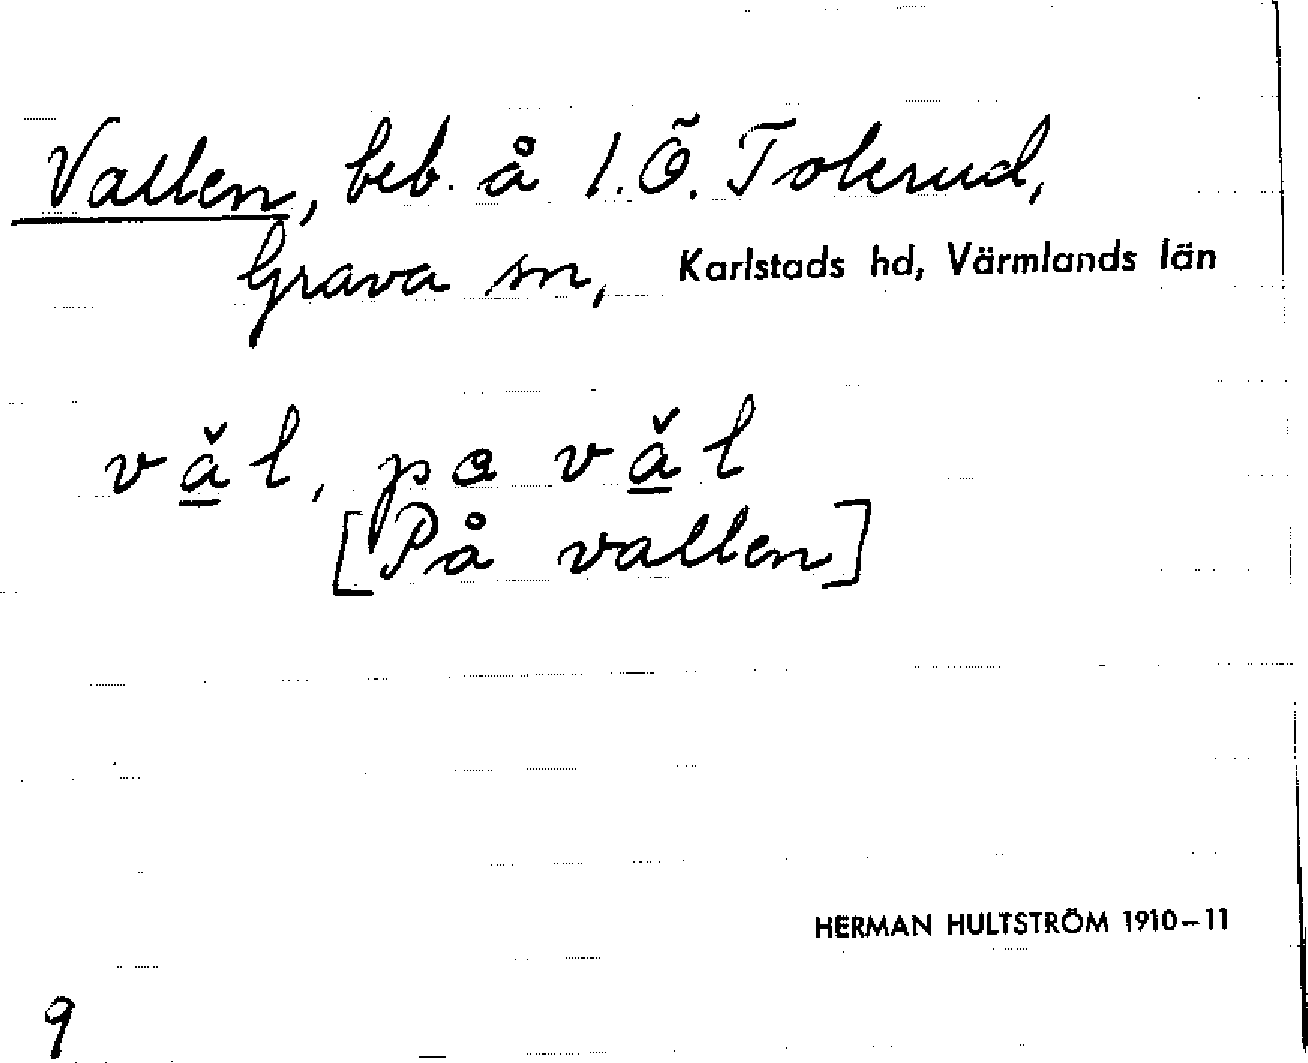 Vallen, beb. å 1. Ö. Tolerud,
Grava sn, Karlstads hd, Värmlands län
vǎ̲l, pa vǎ̲l
[På vallen]
HERMAN HULTSTRÖM 1910–11
9